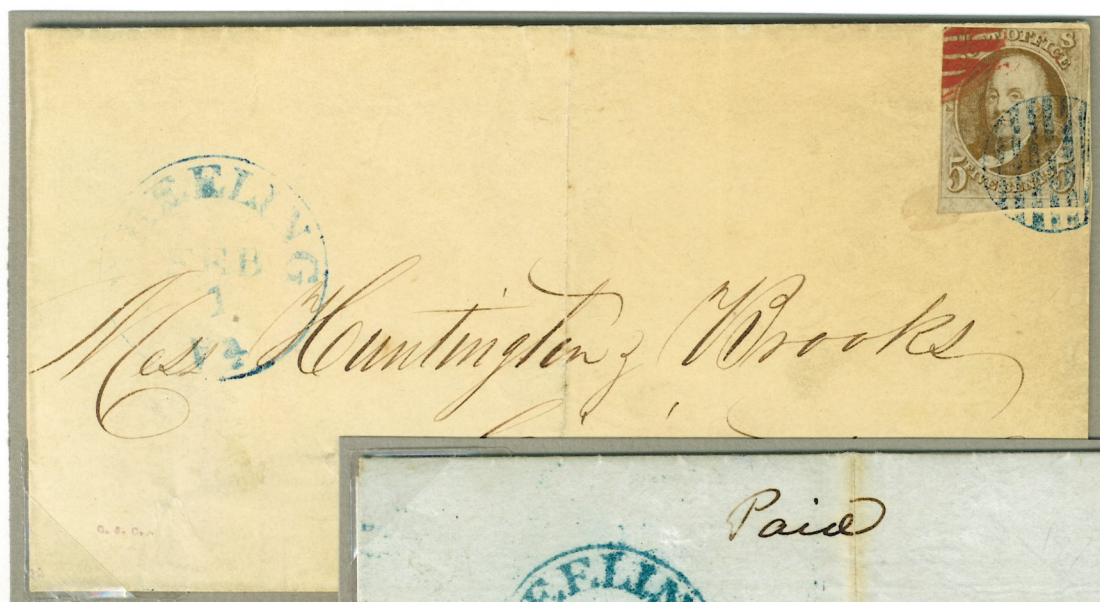 POST OFFICE
5 FIVE CENTS 5
WHEELING
FEB
1
Va
Mess Huntington & Brooks
Paid